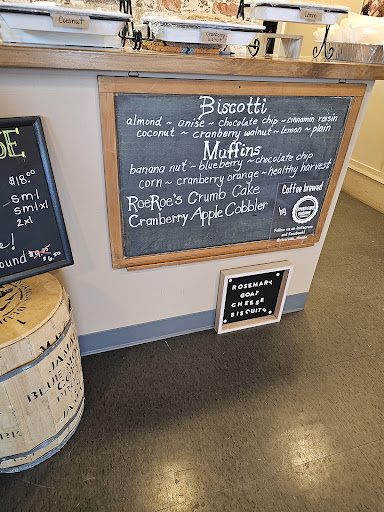 Coconut
Cranberry Walnut
Lemon
Biscotti
almond ~ anise ~ chocolate chip ~ cinnamin raisin
coconut ~ cranberry walnut ~ lemon ~ plain
Muffins
banana nut ~ blueberry ~ chocolate chip
corn ~ cranberry orange ~ healthy harvest
RoeRoe's Crumb Cake
Cranberry Apple Cobbler
Coffee brewed
by
Follow us on Instagram
and Facebook!
SE
$18.00
sml
smlxl
2xl
e!
ound $9.00
$6.00
ROSEMARY
GOAT
CHEESE
BISCUITS
JA
BLUE MO